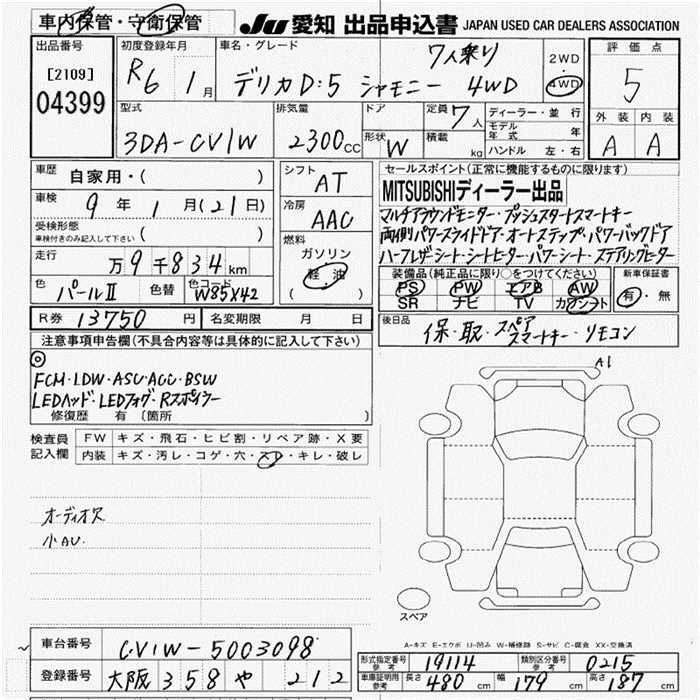 車内保管・守衛保管
JU 愛知 出品申込書 JAPAN USED CAR DEALERS ASSOCIATION
出品番号
[2109]
04399
初度登録年月
R6 1月
車名・グレード
7人乗り
デリカD:5 シャモニー 4WD
2WD
・
4WD
評価点
5
外装 内装
A A
型式
3DA-CV1W
排気量
2300cc
ドア
形状 W
定員 7人
積載 kg
ディーラー・並行
モデル年式 年
ハンドル 左・右
車歴
自家用・( )
車検 9年 1月(21日)
受検形態
車検付きのみ記入して下さい ( )
走行
万9千834km
色 パールⅡ 色替 色コード W85X42
シフト
AT
冷房
AAC
燃料
ガソリン
・
軽油
( )
セールスポイント(正常に機能するものに限ります)
MITSUBISHIディーラー出品
マルチアラウンドモニター・プッシュスタートスマートキー
両側パワースライドドア・オートステップ・パワーバックドア
ハーフレザーシート・シートヒーター・パワーシート・ステアリングヒーター
装備品(純正品に限り○をつけてください)
PS PW エアB AW
SR ナビ TV カワシート
新車保証書
有・無
R券 13750円 名変期限 月 日
後日品 保・取・スペアスマートキー・リモコン
注意事項申告欄(不具合内容等は具体的に記入して下さい)
◎
FCM・LDW・ASC・ACC・BSW
LEDヘッド・LEDフォグ・Rスポイラー
修復歴 有 〔箇所 〕
検査員記入欄
FW キズ・飛石・ヒビ割・リペア跡・X要
内装 キズ・汚レ・コゲ・穴・スレ・キレ・破レ
オーディオレス
小AU.
A1
スペア
A-キズ E-エクボ U-凹み W-補修跡 S-サビ C-腐食 XX-交換済
車台番号 CV1W-5003098
登録番号 大阪 358 や 212
形式指定番号 参考 19114 類別区分番号 参考 0215
車庫証明用 参考 長さ 480cm 幅 179cm 高さ 187cm